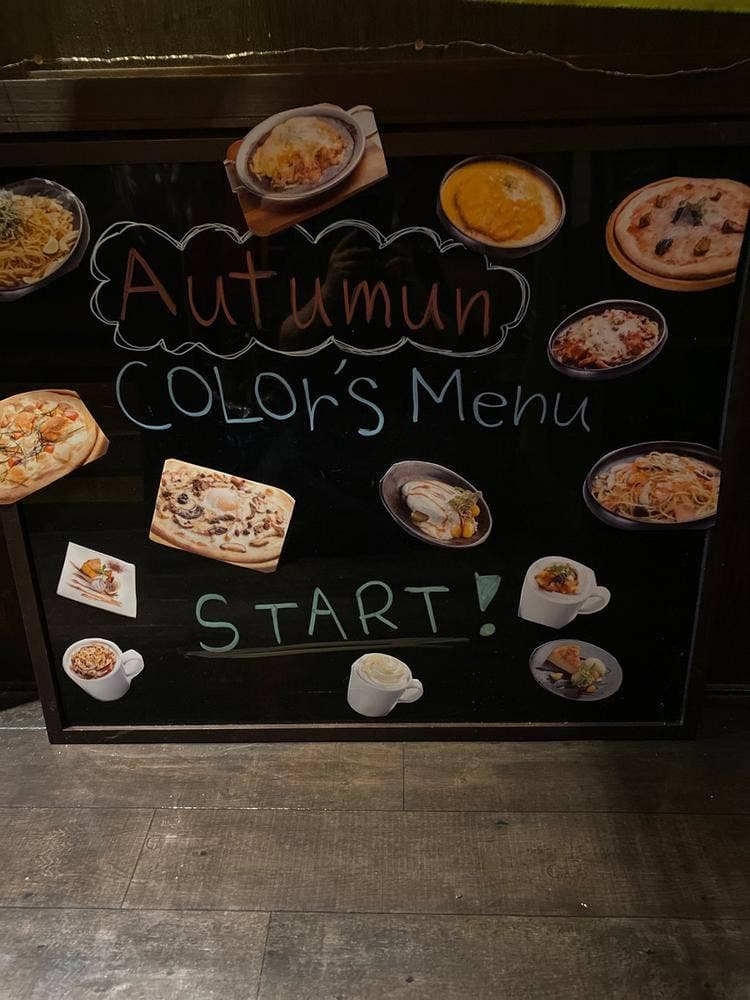 Autumun
COLOr'S Menu
START!